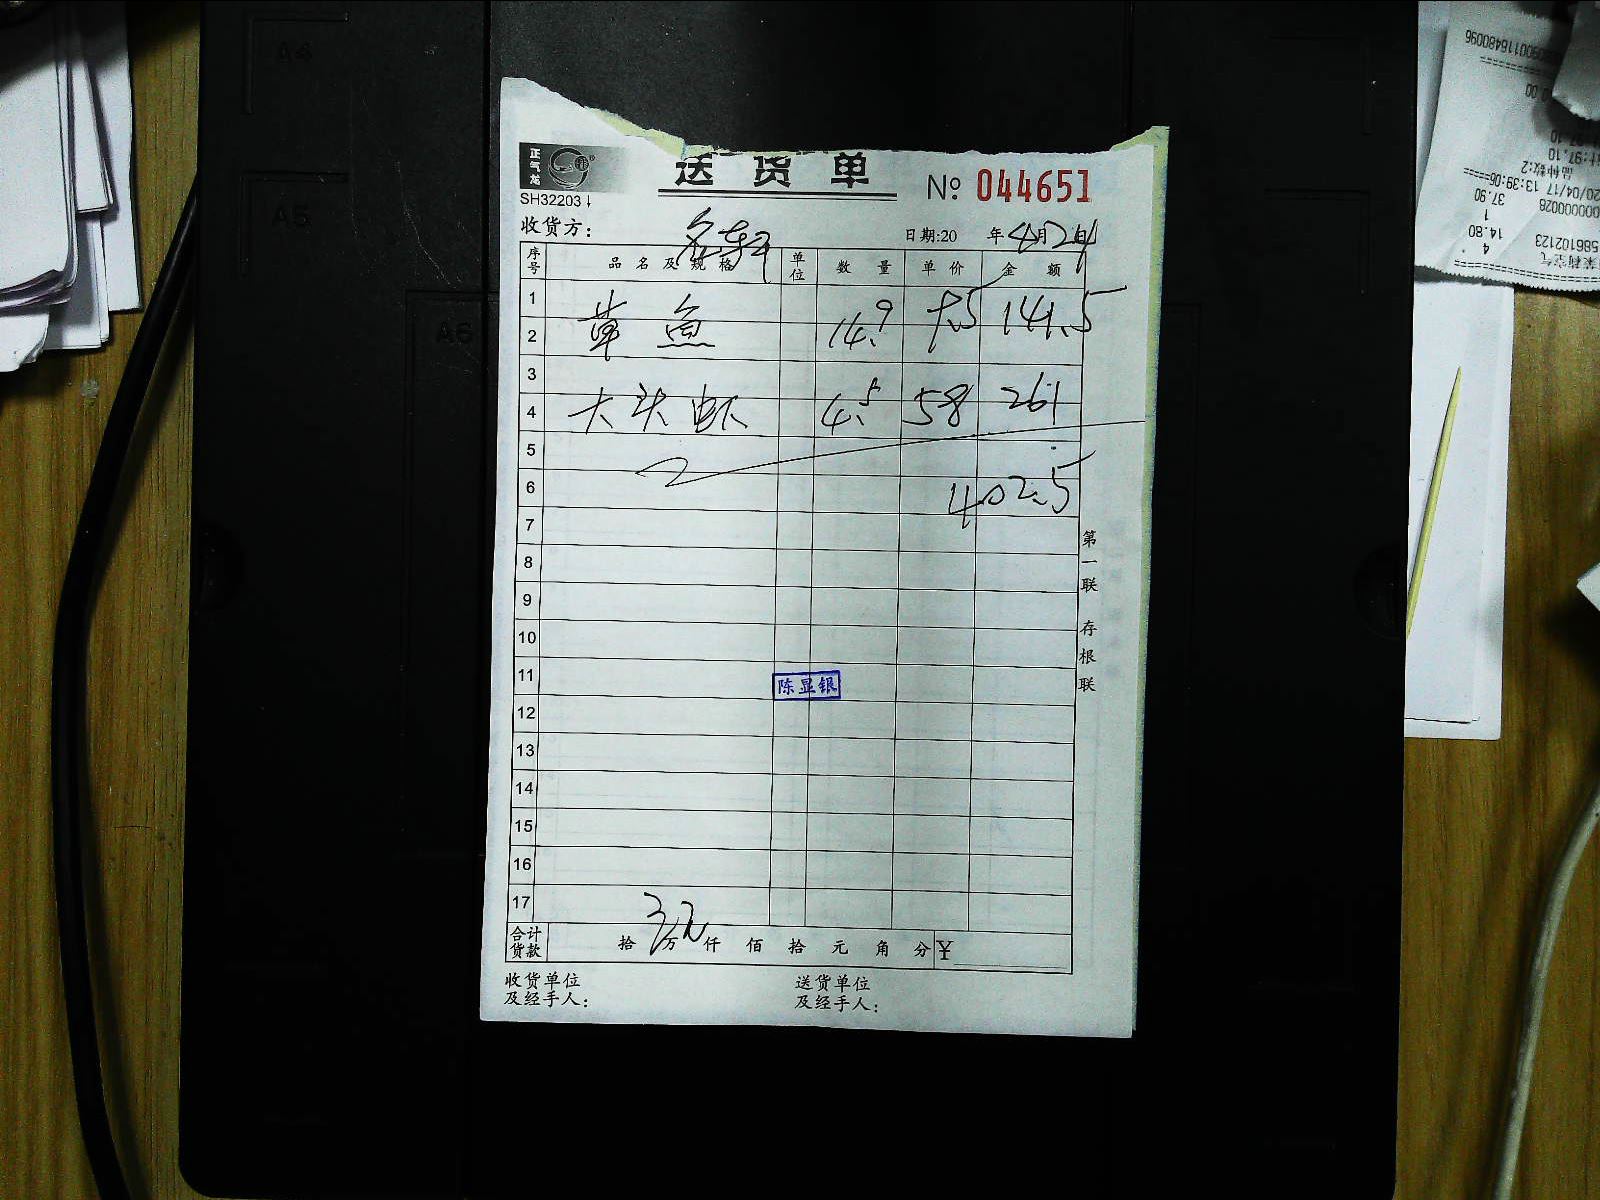 A4
A5
A6
正气龙
送货单
№ 044651
SH32203↓
收货方：名轩
日期:20 年4月24日
序号 品名及规格 单位 数量 单价 金额
1
草鱼 14.9 9.5 141.5
2
3
大头虾 4.5 58 261
4
5
402.5
6
7
8
9
10
11
陈显银
12
13
14
15
16
17
合计货款 拾万仟佰拾元角分 ¥
收货单位及经手人：
送货单位及经手人：
第一联 存根联
37.90
1
14.80
4
品种数:2
20/04/17 13:39:06
:97.10
586102123